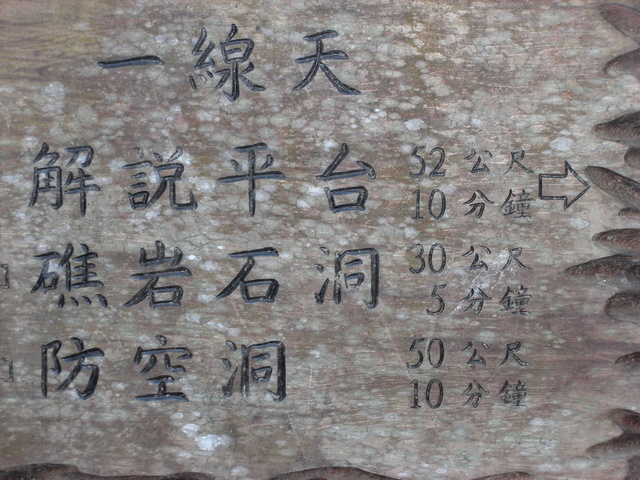 一線天
解説平台 52公尺
10分鐘
礁岩石洞 30公尺
5分鐘
防空洞 50公尺
10分鐘